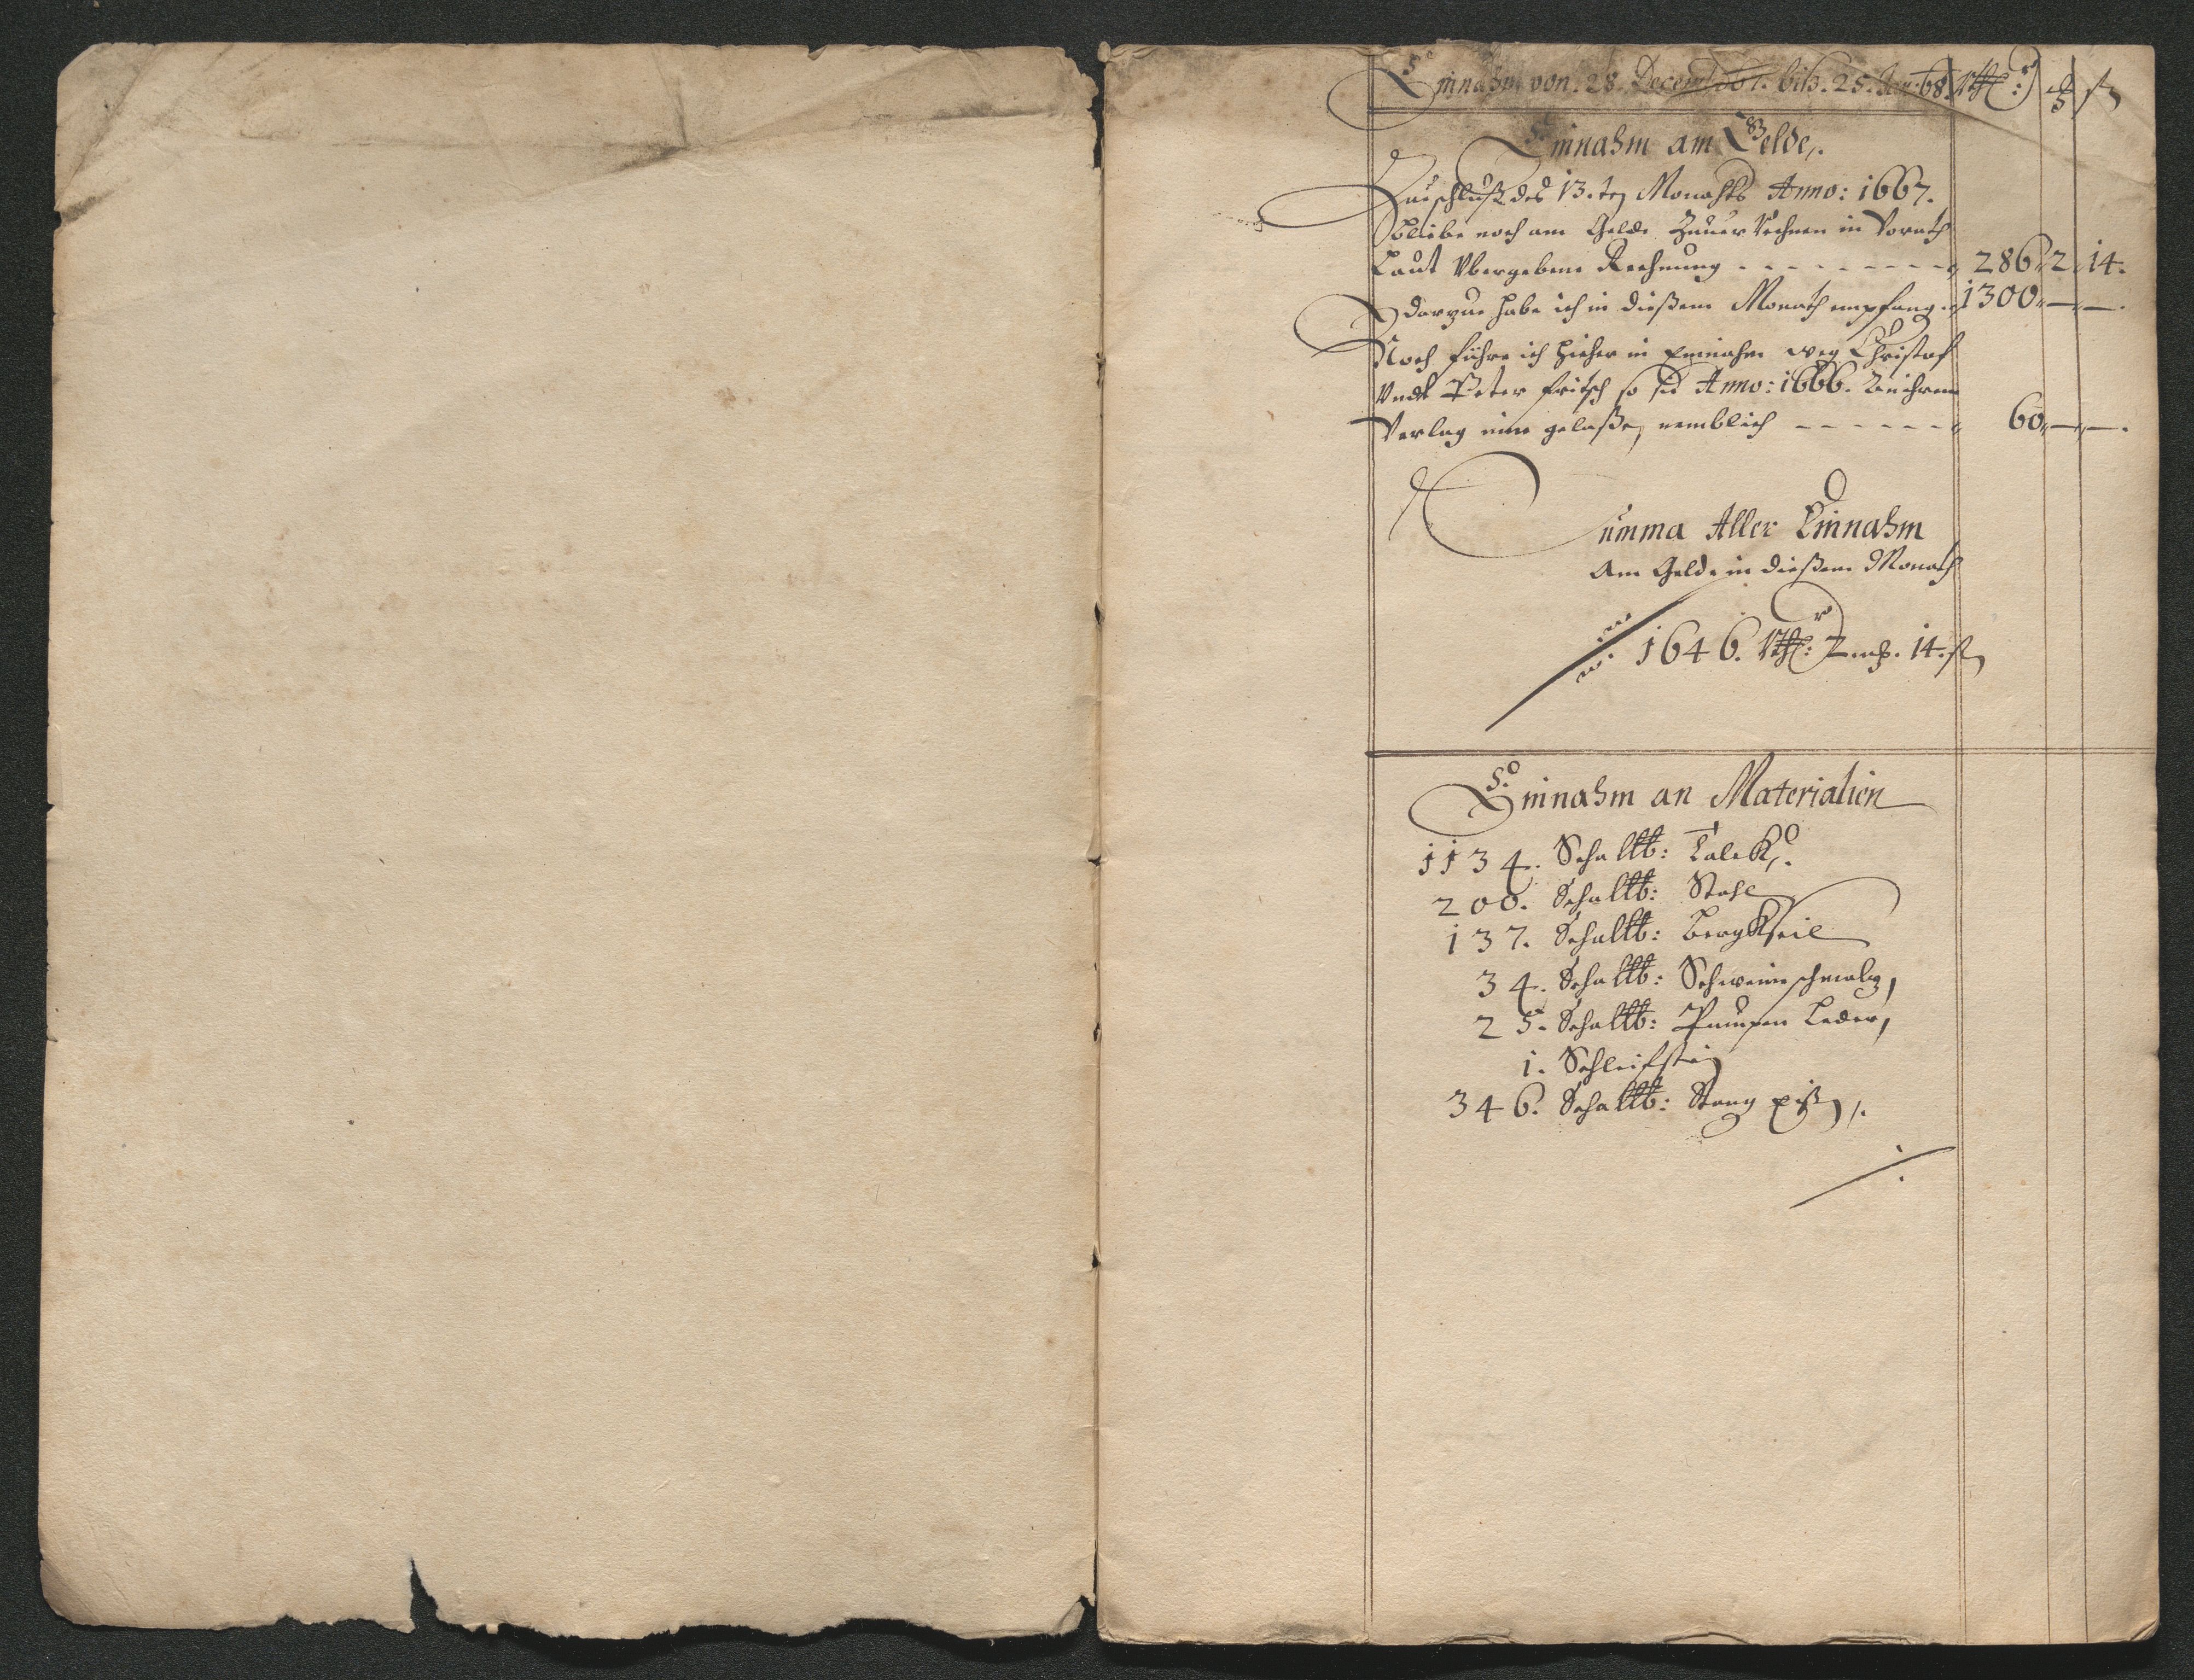 Einnahm von 28 Decemb 667. biß. 25. Jan: 68. Rthl:
Einnahm am Gelde,.
Zueschluß des 13.ten Monahts Anno: 1667.
Bliebe noch am Gelde Zuuer Rechnen in Vorath
Laut Vbergebene Rechnung - - - - - - - - - 286 2 14.
darzue habe ich in dießem Monath empfang. 1300. — —.
Noch führe ich hieher in Einnahm weg Christof
Vndt Peter Fritsch so sie Anno: 1666. Zu ihrem
Verlag inne gelaßen, nemblich - - - - - - 60. — —.
Summa Aller Einnahm
Am Gelde in dießem Monath
1646. Rthl: 2 mß. 14. ß
Einnahm an Materialien
1134. Schallb: Talck,.
200. Schallb: Stahl
137. Schallb: Bergkseil
34. Schallb: Schweineschmalz,
25. Schallb: Pumpen Leder,
1. Schleifstein
346. Schallb: Stang Eißen,.